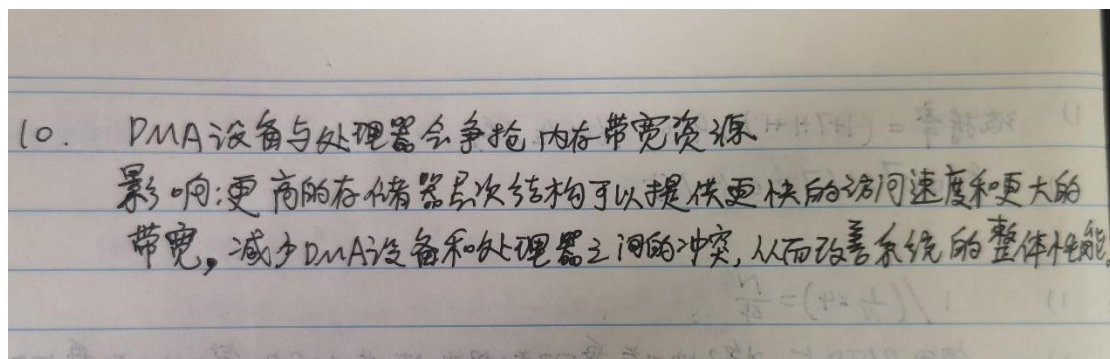 10. DMA设备与处理器会争抢内存带宽资源
影响:更高的存储器层次结构可以提供更快的访问速度和更大的
带宽,减少DMA设备和处理器之间的冲突,从而改善系统的整体性能。